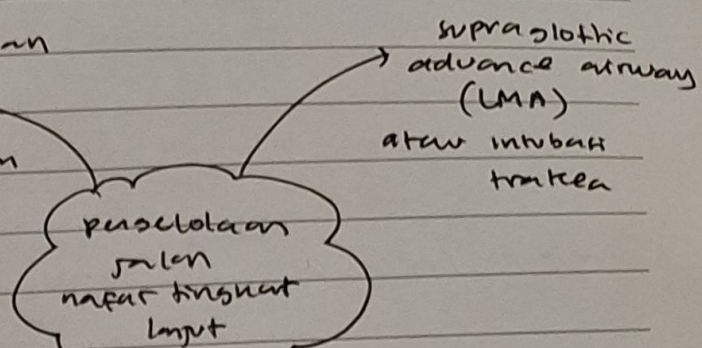 an
supraglothic
advance airway
(LMA)
atau intubasi
trakea
n
pengelolaan
jalan
nafas tingkat
lanjut